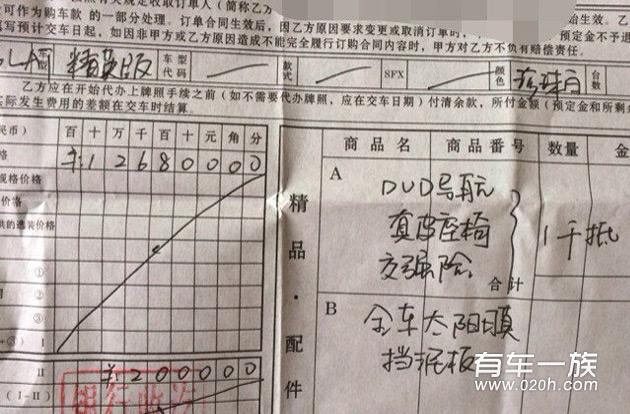 可作为购车款 的一部分处理。订单合同生效后，因乙方原因要求变更或取消订单时，
填写预计交车日起，如因非甲方或乙方原因造成不能完全履行订购合同内容时，甲方对乙方不负有赔偿责任。
精英版 车型代码 款式 SFX 颜色 珍珠白 台数
乙方应在开始代办上牌照手续之前（如不需要代办牌照，应在交车日期）付清余款，所付金额（预定金和所剩余
实际发生费用的差额在交车时结算。
民币） 百 十 万 千 百 十 元 角 分
格 1 2 6 8 0 0 0 0
规格价格
价格
供的选装价格
①
②
③
I
II 2 0 0 0 0 0
(I-II)
精品·配件
商品名 商品番号 数量 金
A DVD导航
真皮座椅
交强险
合计 1千抵
B 全车太阳膜
挡泥板
有车一族
www.020h.com